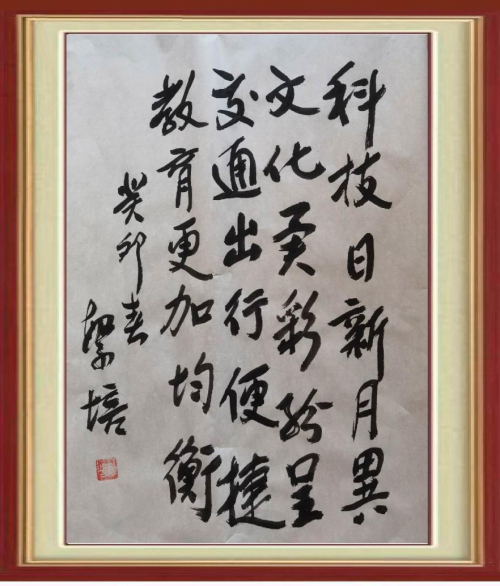 科技日新月異
文化异彩紛呈
交通出行便捷
教育更加均衡
癸卯春
培